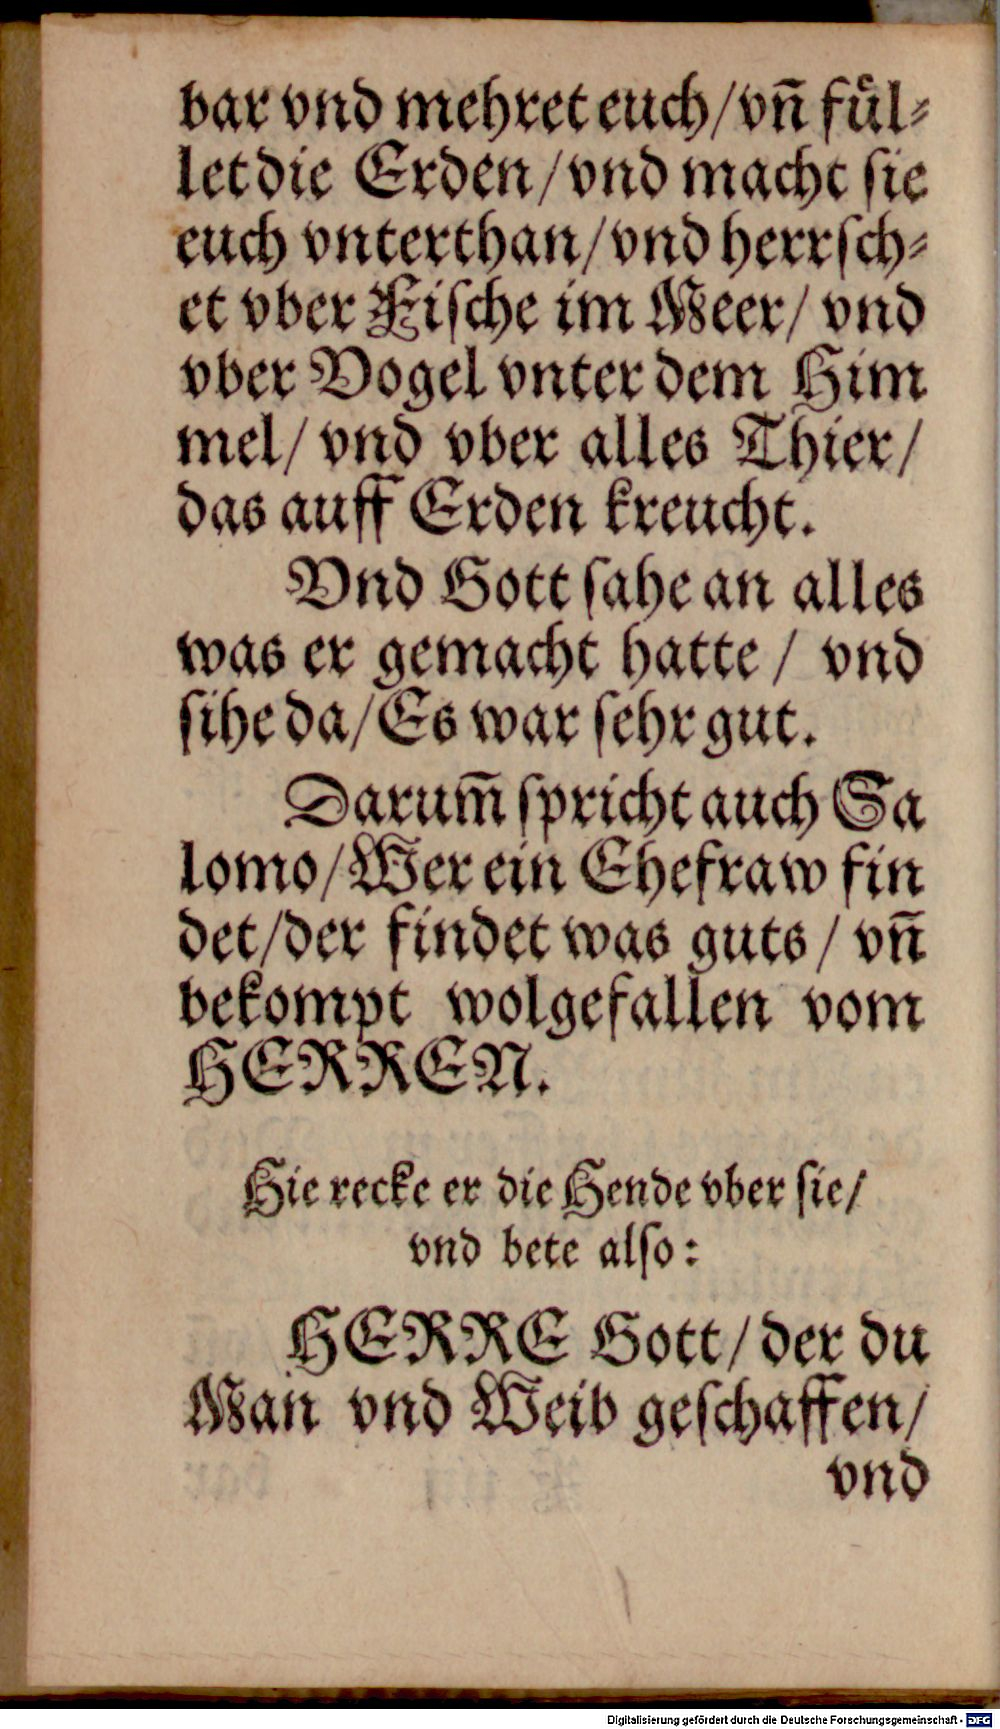 bar vnd mehret euch/vñ fuͤl⸗
let die Erden/vnd macht sie
euch vnterthan/vnd herrſch⸗
et vber Fiſche im Meer/ vnd
vber Vogel vnter dem Him
mel/ vnd vber alles Thier/
das auff Erden kreucht.
Vnd Gott ſahe an alles
was er gemacht hatte / vnd
ſihe da/Es war ſehr gut.
Darum̃ ſpricht auch Sa
lomo/Wer ein Ehefraw fin
det/der findet was guts/ vñ
bekompt wolgefallen vom
HERREN.
Hie recke er die Hende vber ſie/
vnd bete alſo:
HERRE Gott/der du
Man vnd Weib geſchaffen/
vnd
Digitalisierung gefördert durch die Deutsche Forschungsgemeinschaft - DFG